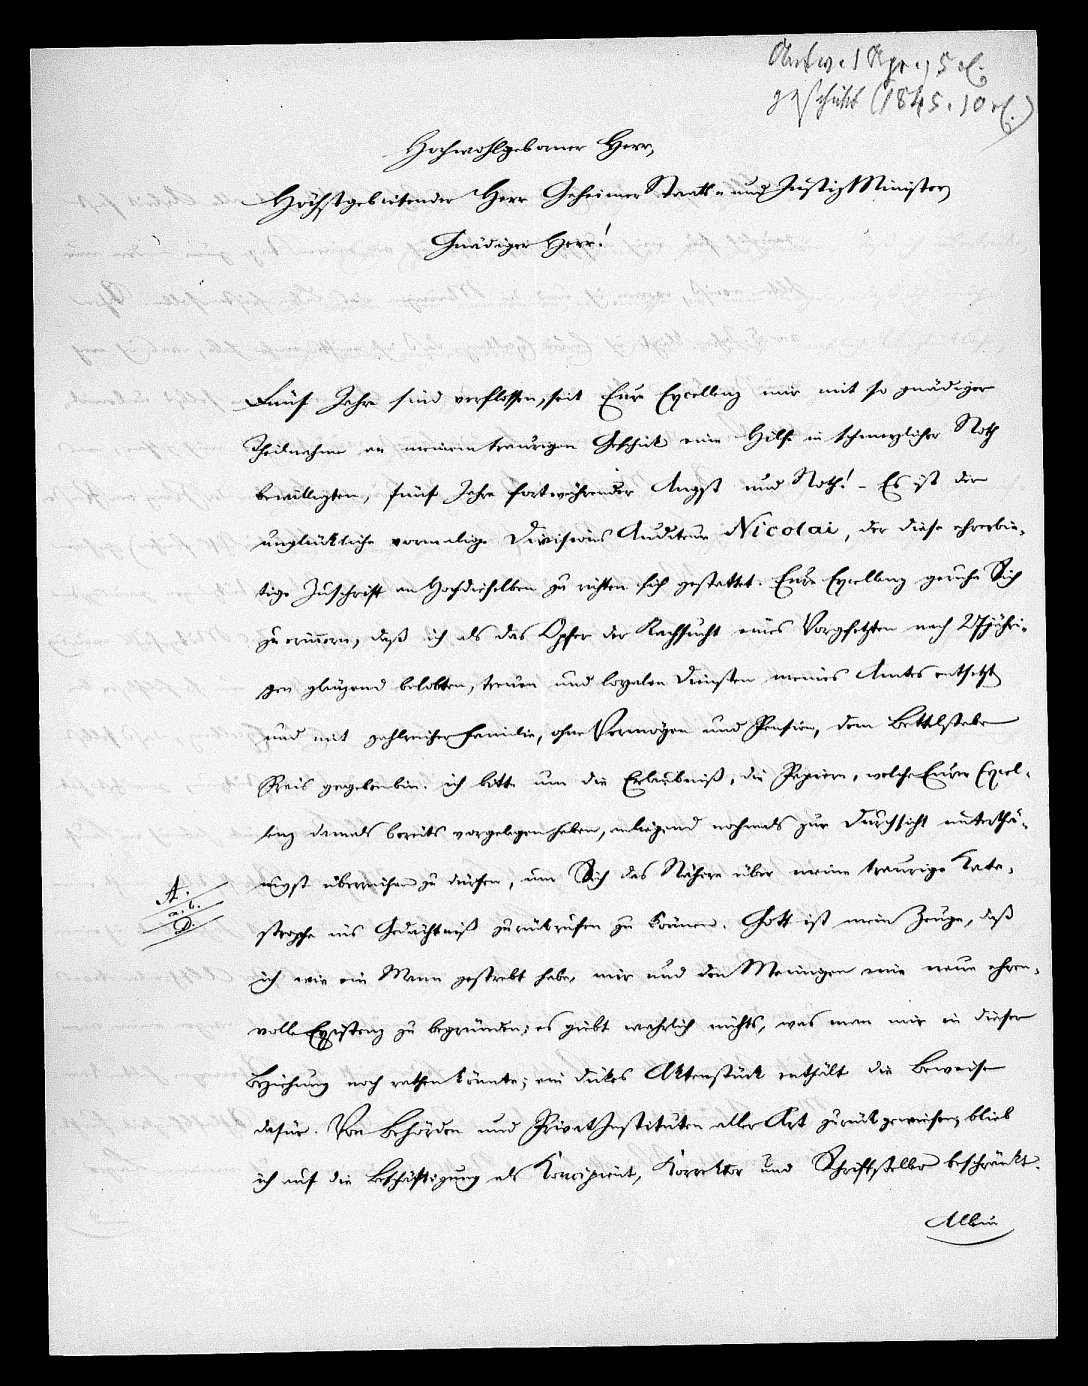 Antw. 1 Apr. 5 rl.
geschickt (1845. 10 rl.)
Hochwohlgeborner Herr,
Höchstgebietender Herr Geheimer Staats- und Justiz Minister,
Gnädiger Herr!
Fünf Jahre sind verflossen, seit Eure Excellenz mir mit so gnädiger
Theilnahme an meinem traurigen Geschick eine Hilfe in schmerzlicher Noth
bewilligten, fünf Jahre fortwährender Angst und Noth! – Es ist der
unglückliche vormalige Divisions Auditeur Nicolai, der diese ehrerbie-
tige Zuschrift an Hochdieselben zu richten sich gestattet. Eure Excellenz geruhe Sich
zu erinnern, daß ich als das Opfer der Rachsucht eines Vorgesetzten nach 27jähri-
gen glänzend belobten, treuen und loyalen Diensten meines Amtes entsetzt
und mit zahlreicher Familie, ohne Vermögen und Pension, dem Bettelstabe
Preis gegeben bin. ich bitte um die Erlaubniß, die Papiere, welche Eurer Excel-
lenz damals bereits vorgelegen haben, anliegend nochmals zur Durchsicht unterthä-
nigst überreichen zu dürfen, um Sich das Nähere über meine traurige Kata-
A.
a. b.
D.
strophe ins Gedächtniß zurückrufen zu können. Gott ist mein Zeuge, daß
ich wie ein Mann gestrebt habe, mir und den Meinigen eine neue ehren-
volle Existenz zu begründen; es giebt wahrlich nichts, was man mir in dieser
Beziehung noch rathen könnte; ein dickes Aktenstück enthält die Beweise
dafür. Von Behörden und Privat Instituten aller Art zurückgewiesen, blieb
ich auf die Beschäftigung als Koncipient, Korrektor und Schriftsteller beschränkt.
Allein